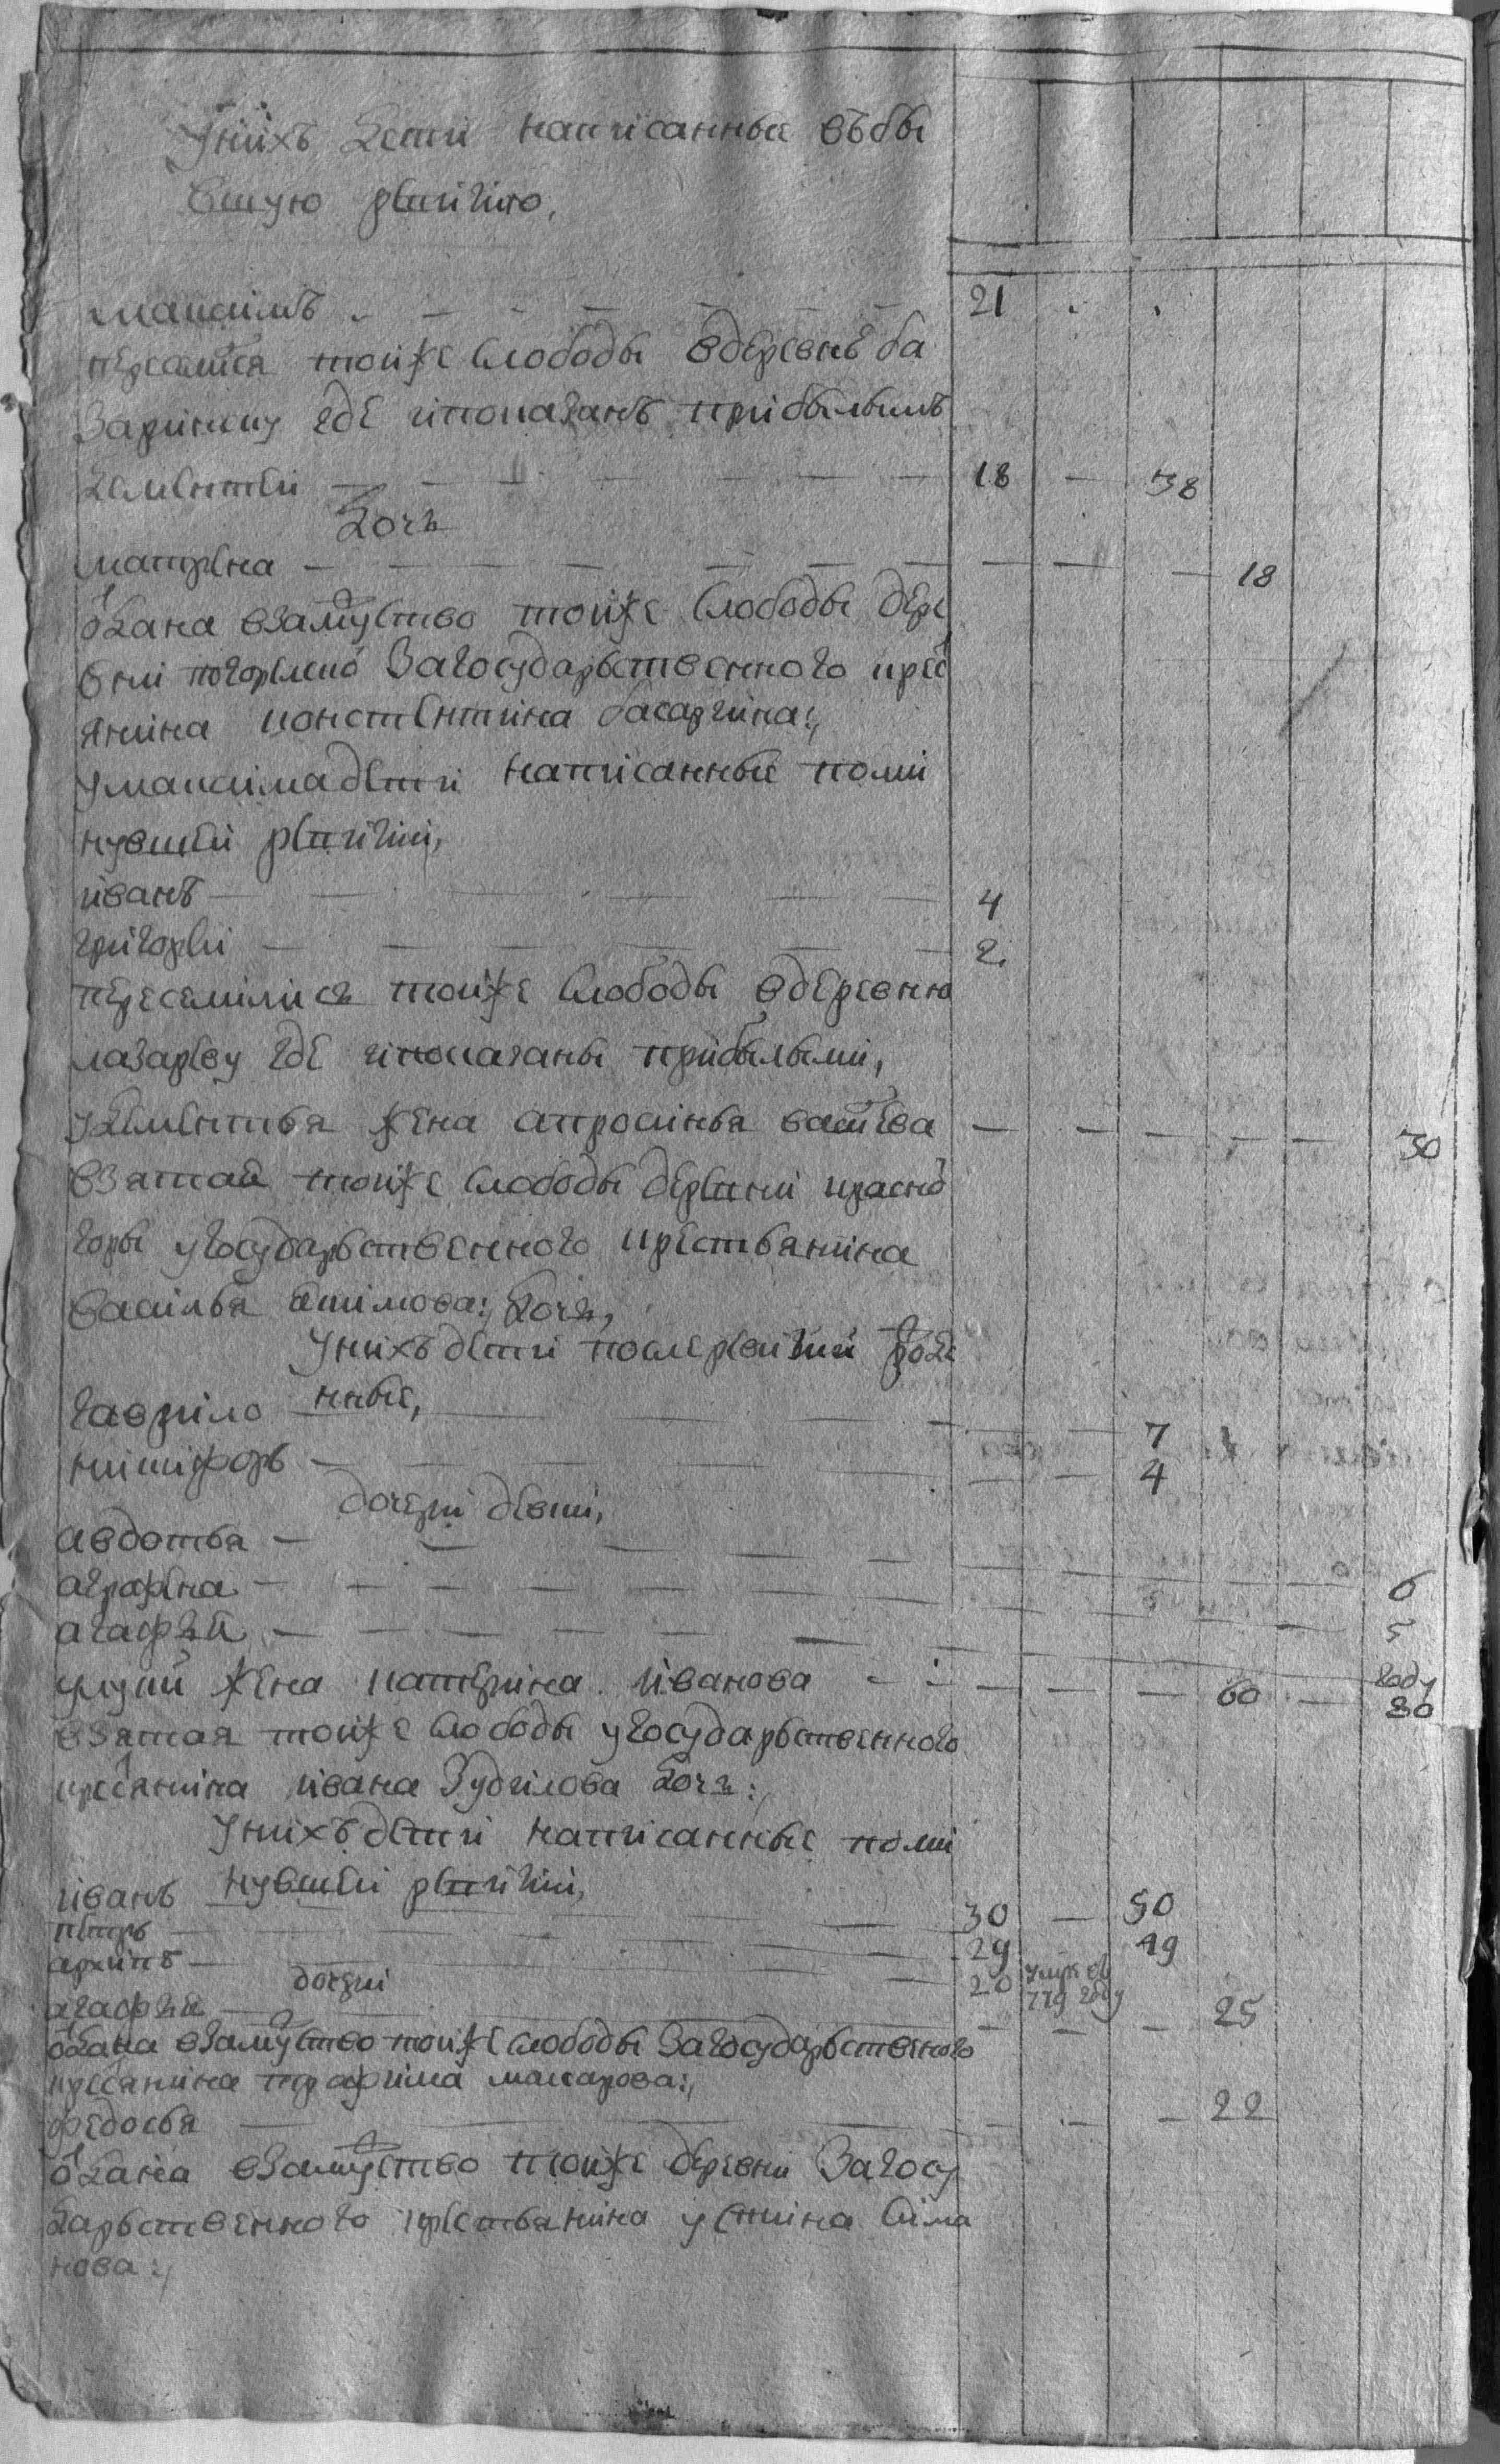 У нихъ дети написанныя въ бы
вшую ревизию,
Максимъ - - - - - - 21
переселился тоиже слободы в деревне ба
заринску где и показанъ прибылымъ
Дементеи - - - - - 18 - 38
дочь
матрена - - - - - - - - 18
одана в замужство тоиже слободы дере
вни погорелко за государьственного крес
янина констентина басаргина:,
у максима дети написанные поми
нувшеи ревизии,
иванъ - - - - - 4
григореи - - - - - 2.
переселилися тоиже слободы в деревню
лазареву где и показаны прибылыми,
у Дементья жена апросинья васильева - - - - - 30
взятая тоиже слободы деревни красно
горы у государьственного крестьянина
василья дочь,
У нихъ дети после ревизии рожде
нные,
гаврило - - - - - 7
никифоръ - - - - - 4
дочери девки,
авдотья - - - - - 6
аграфена - - - - - 5
агафья - - - - - году
жена катерина иванова - - - - 60 - 80
взятая тоиже слободы у государьственного
кресянина ивана Зудилова дочь:,
У нихъ дети написанные поми
нувшеи ревизии,
иванъ - - 30 - 50
петръ - - 29 49
архипъ - - 20 умре в 779 году
дочери
агафья - - - - - 25
одана в замужство тоиже слободы за государьственого
кресянина трофима макарова:,
федосья - - - - - 22
одана в замужство тоиже деревни за госу
дарьственного крестьянина устина сима
нова:,